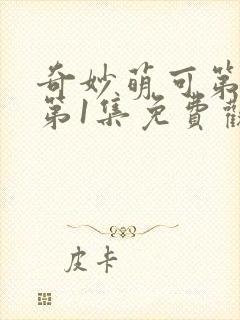 奇妙萌可第
第1集免費
皮卡